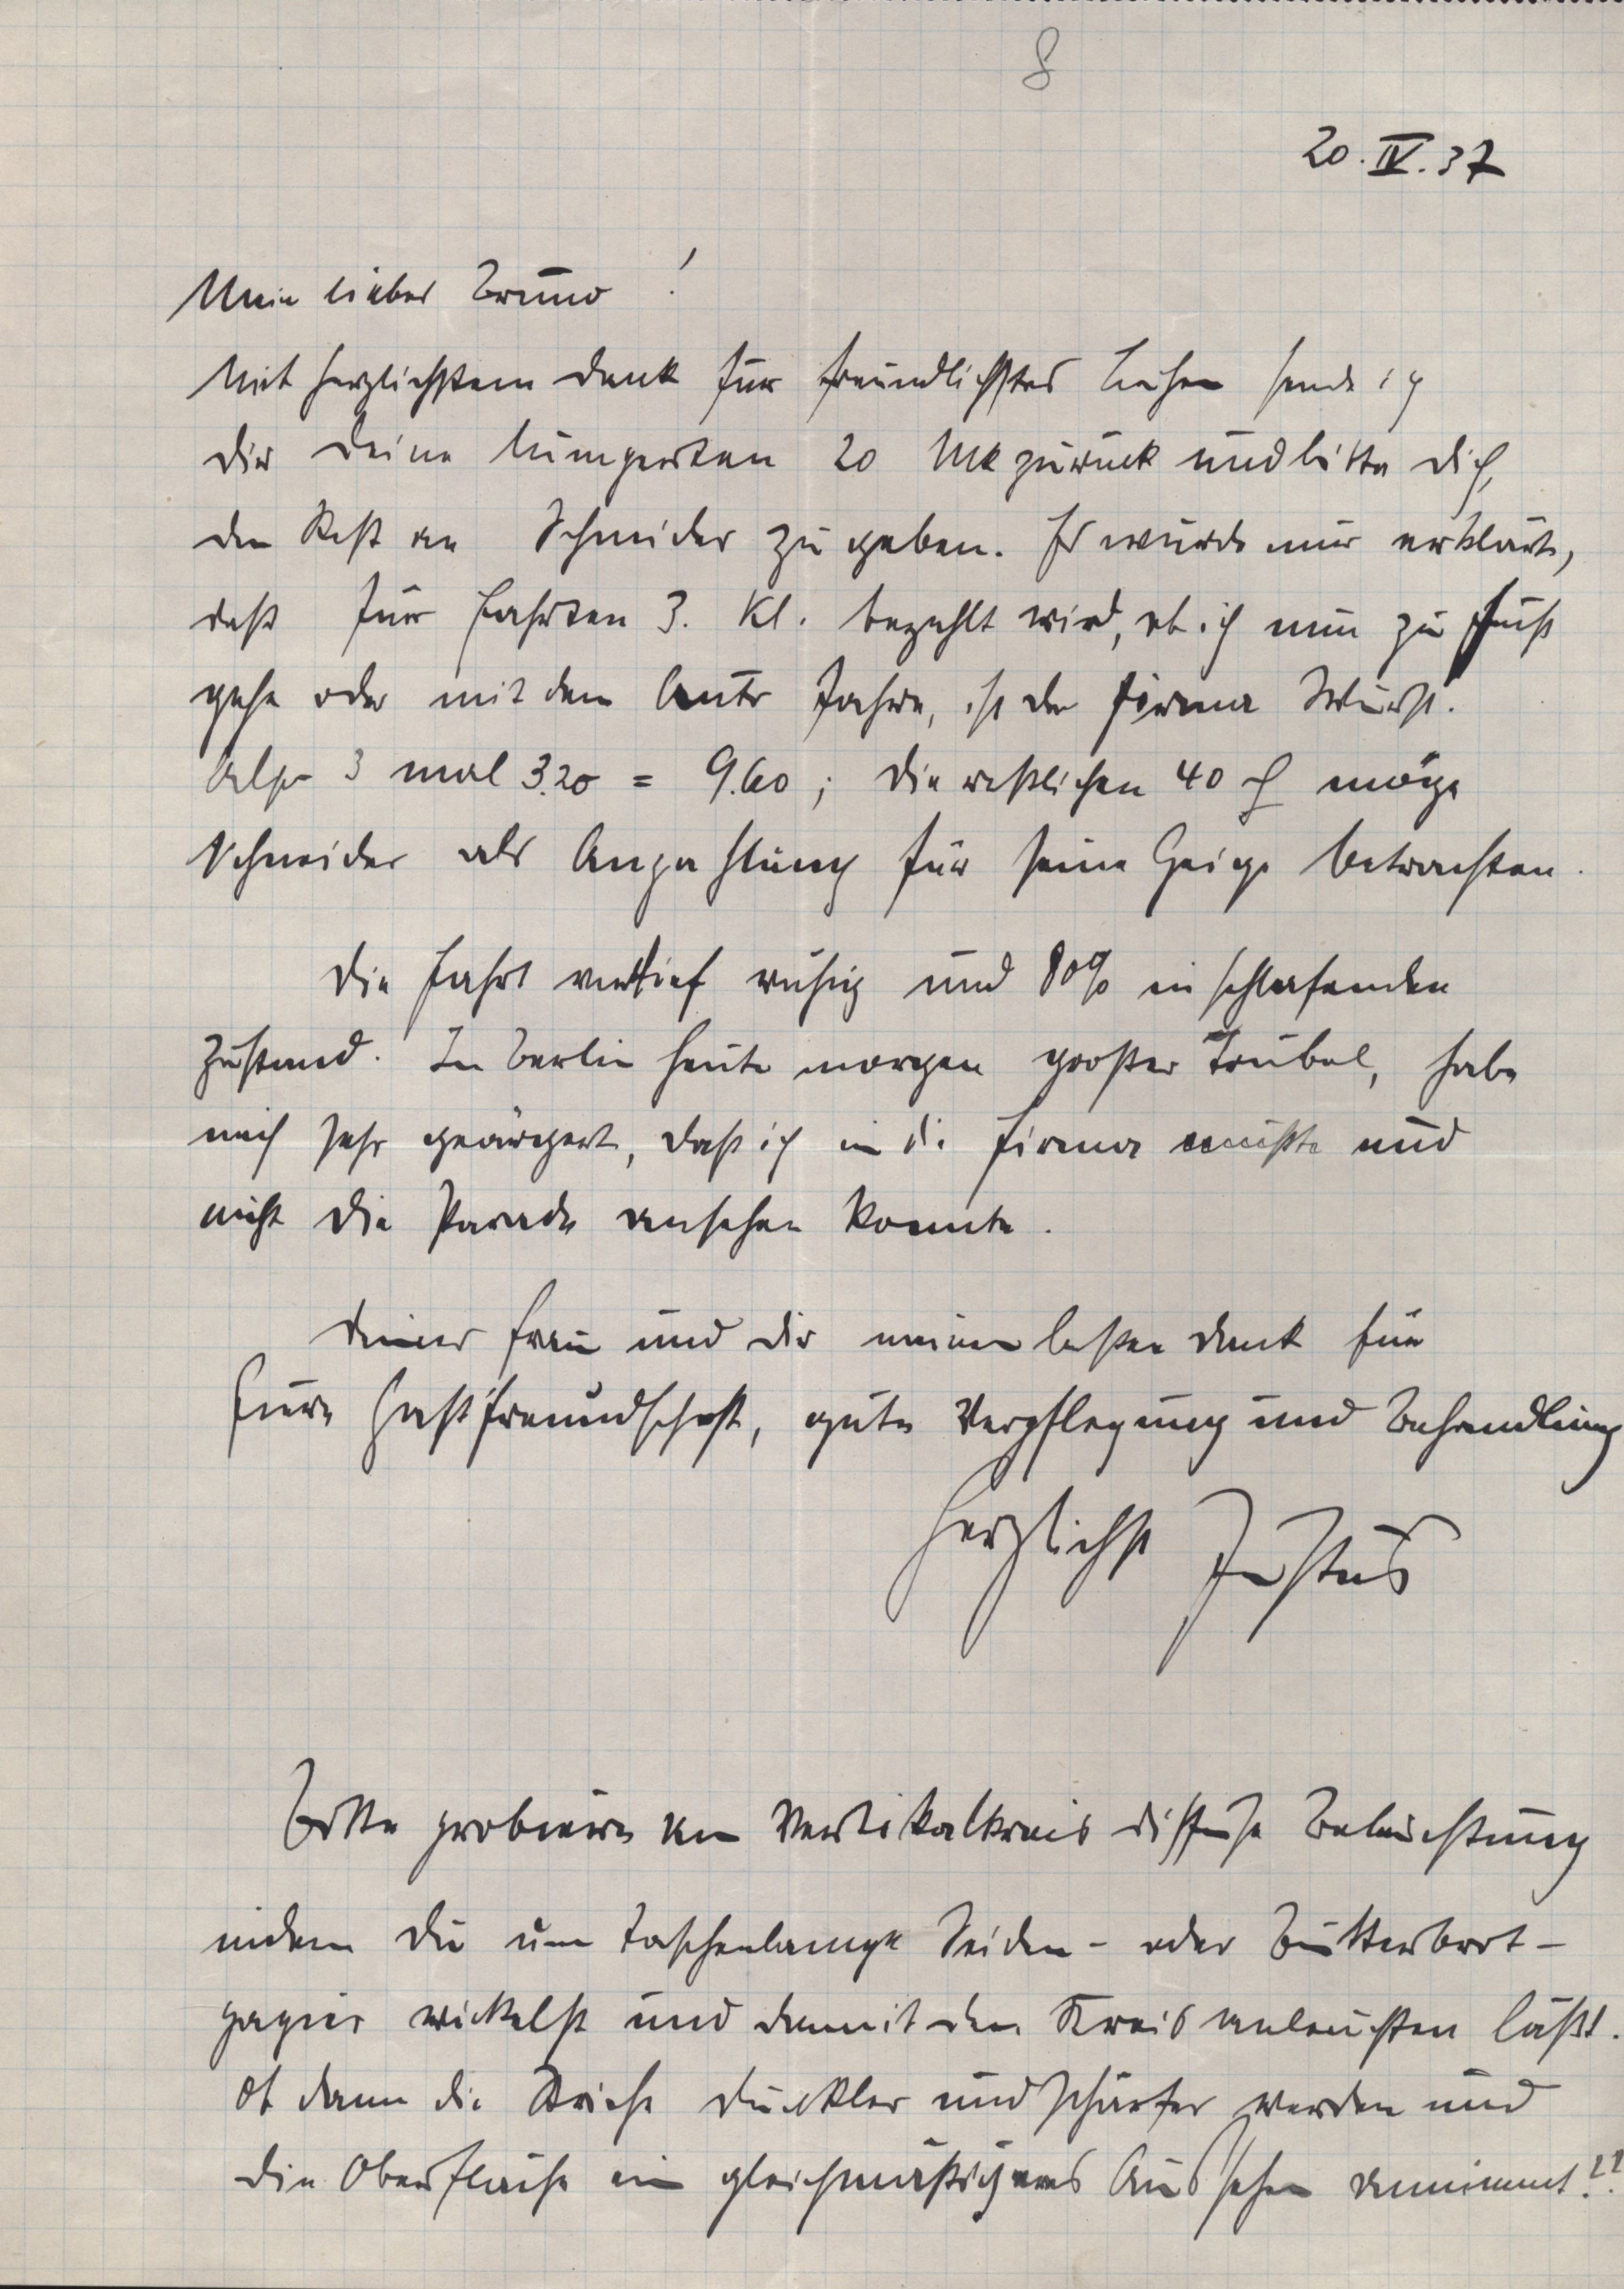 8
20. IV. 37
Mein lieber Bruno!
Mit herzlichstem Dank für freundlichstes Leihen sende ich
dir deine lumperten 20 Mk zurück und bitte dich,
den Rest an Schneider zu geben. Es wurde mir erklärt,
daß für Fahrten 3. Kl. bezahlt wird, ob ich nun zu Fuß
gehe oder mit dem Auto fahre, ist der Firma Wurst.
Also 3 mal 3.20 = 9.60; die restlichen 40 ₰ möge
Schneider als Anzahlung für seine Geige betrachten.
Die Fahrt verlief ruhig und 80% in schlafenden
Zustand. In Berlin heute morgen großer Trubel, habe
mich sehr geärgert, daß ich in die Firma mußte und
nicht die Parade ansehen konnte.
Deiner Frau und dir meinen besten Dank für
Eure Gastfreundschaft, gute Verpflegung und Behandlung
Herzlichst Justus
Bitte probiere am Vertikalkreis diffuse Beleuchtung
indem du um Taschenlampe Seiden- oder Butterbrot-
papier wickelst und damit den Kreis anleuchten läßt.
Ob dann die Striche dunkler und schärfer werden und
die Oberfläche ein gleichmäßigeres Aussehen annimmt??